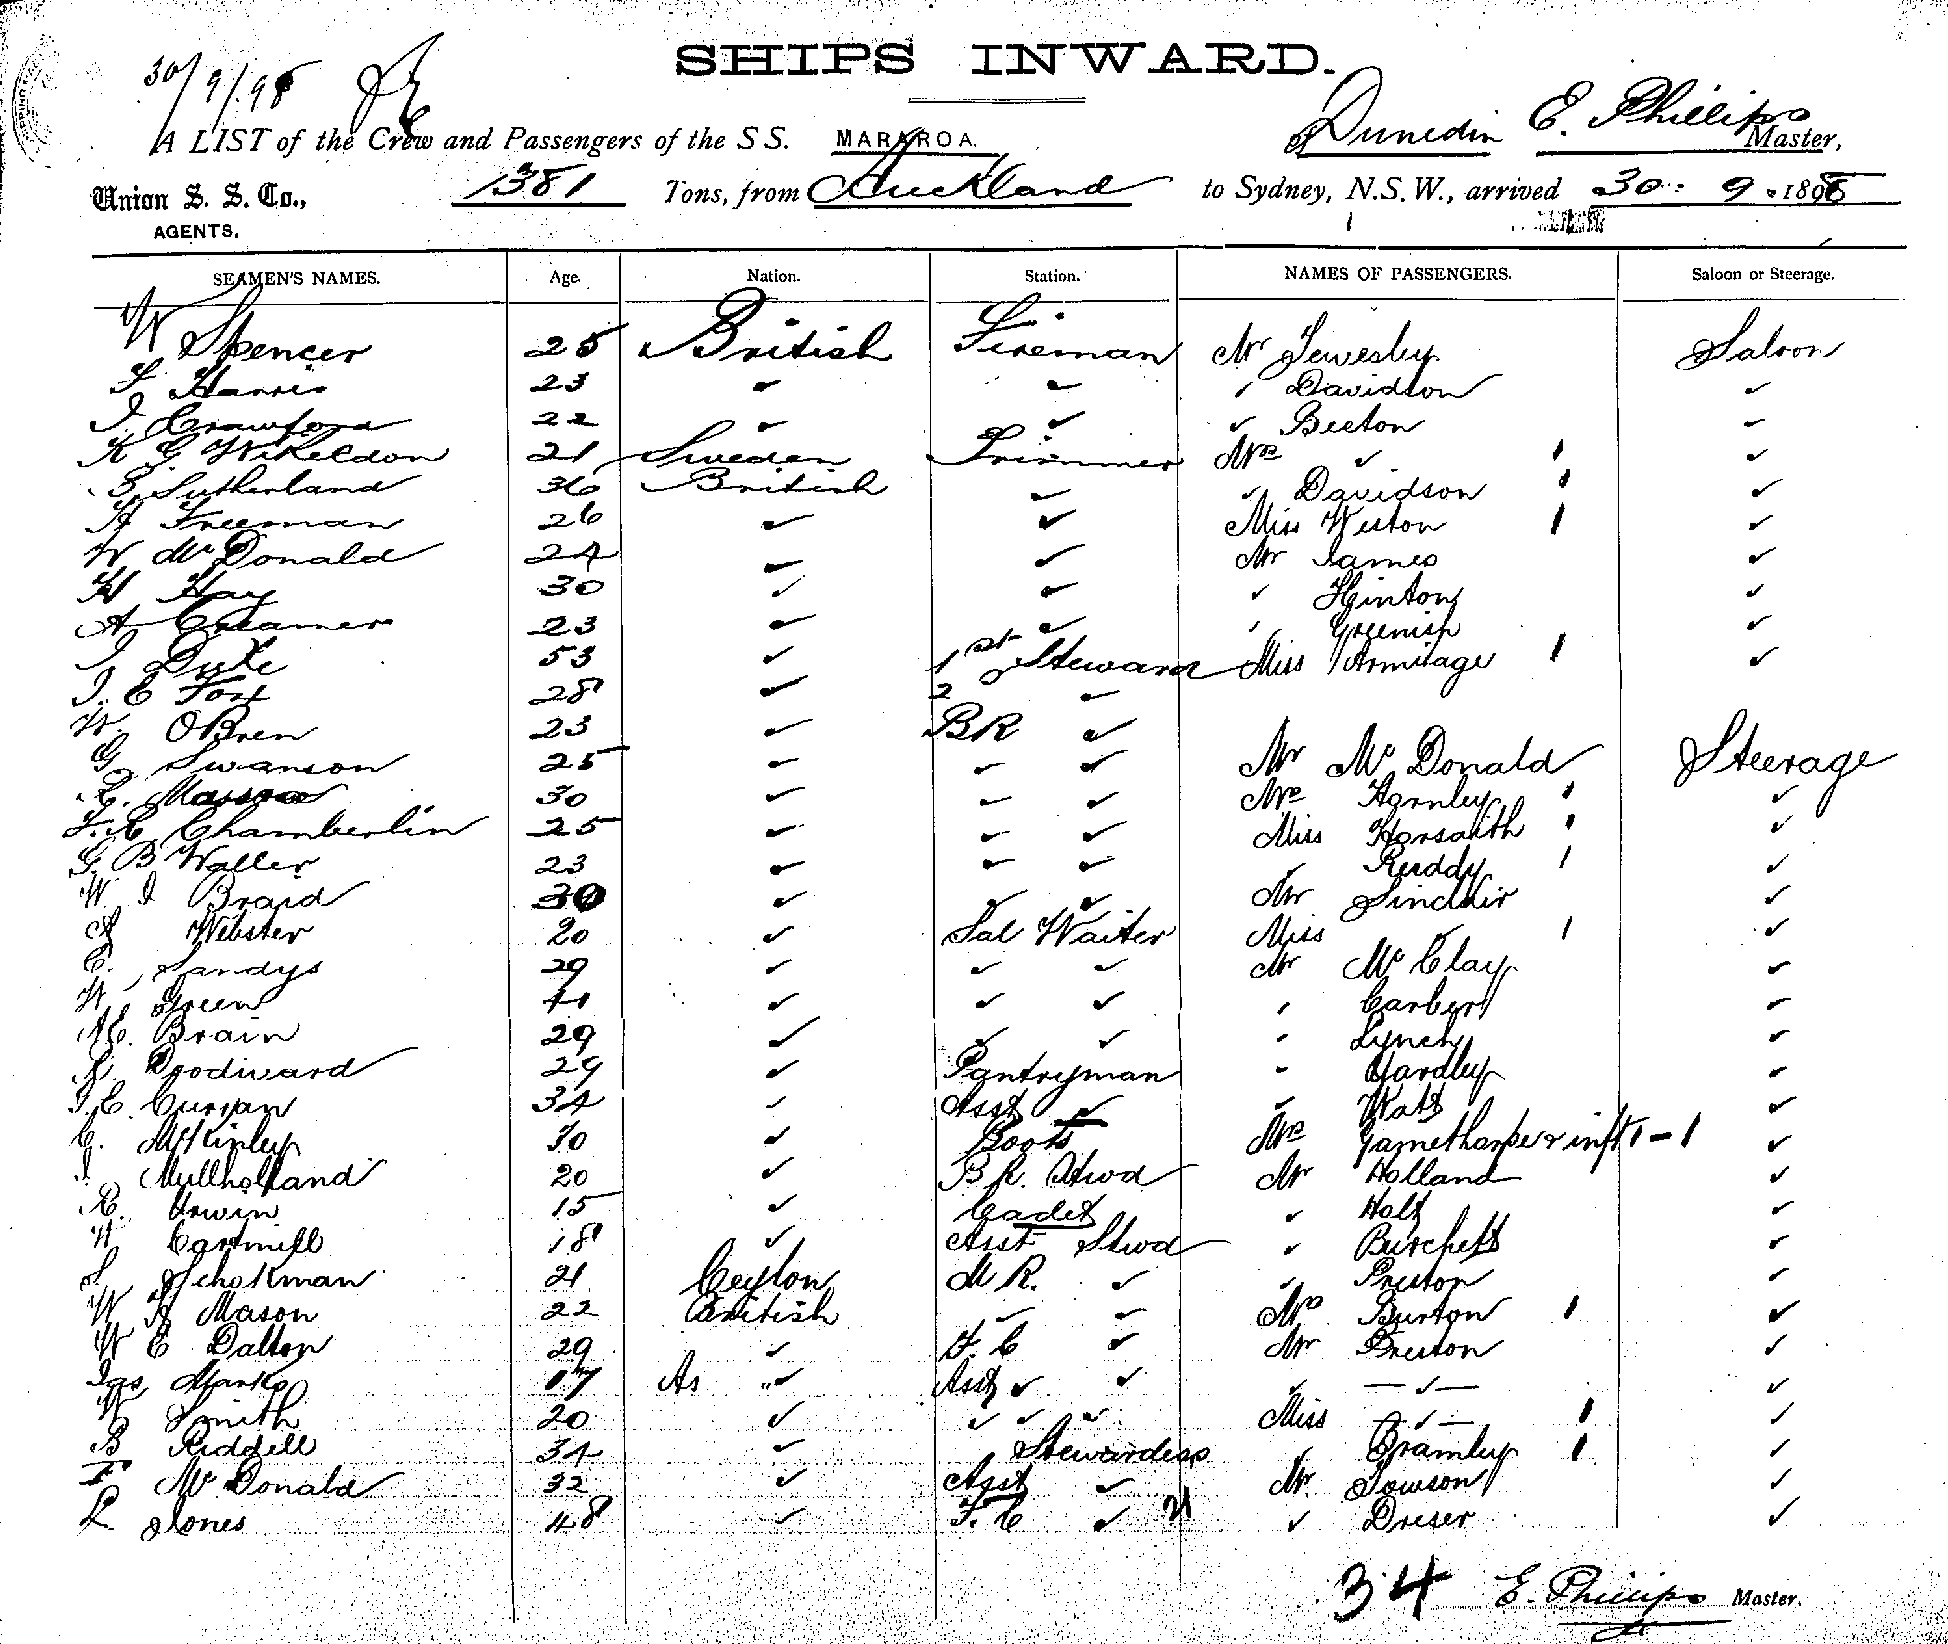 SHIPS INWARD.
30/9/95
A LIST of the Crew and Passengers of the S S. MARAROA. Dunedin E. Phillips Master,
Union S. S. Co., 1381 Tons, from Auckland to Sydney, N.S.W., arrived 30 : 9 . 1895
AGENTS.
SEAMEN'S NAMES. Age. Nation. Station. NAMES OF PASSENGERS. Saloon or Steerage.
W Spencer 25 British Fireman Mr Saloon
F Harris 23 ✓ ✓ ' Davidson ✓
J Crawford 22 ✓ ✓ ✓ Beeton ✓
K G Wikeldon 21 Sweden Trimmer Mrs ✓ 1 ✓
S Sutherland 36 British ✓ ✓ Davidson 1 ✓
A Freeman 26 ✓ ✓ Miss Weston 1 ✓
W McDonald 24 ✓ ✓ Mr James ✓
H Hay 30 ✓ ✓ ✓ Hinton ✓
A Creamer 23 ✓ ✓ ✓ Greenish ✓
J Duke 53 ✓ 1st Steward Miss Armitage 1 ✓
J. E Fox 28 ✓ 2 ✓
W. OBren 23 ✓ BR ✓
G Swanson 25 ✓ ✓ ✓ Mr McDonald Steerage
30 ✓ ✓ ✓ Mrs Hornley 1 ✓
Chamberlin 25 ✓ ✓ ✓ Miss 1 ✓
G. B Waller 23 ✓ ✓ ✓ ✓ Ruddy 1 ✓
W J Braid 30 ✓ ✓ ✓ Mr Sinclair ✓
A Webster 20 ✓ Sal Waiter Miss ✓ 1 ✓
C. Sandys 29 ✓ ✓ ✓ Mr McClay ✓
W Green ✓ ✓ ✓ ' Carbery ✓
Brain 29 ✓ ✓ ✓ " Lynch ✓
Woodward 29 ✓ Pantryman " Yardley ✓
J. C. Curran 34 ✓ Asst ✓ ✓ Watt ✓
C. McKinley 30 ✓ Boots Mrs & inft 1 - 1 ✓
J. Mullholland 20 ✓ B R. Stwd Mr Holland ✓
R. Irwin 15 ✓ Cadet ✓ Holt ✓
W Cartmill 18 ✓ Asst Stwd ✓ Burchett ✓
S Schokman 21 Ceylon M R. ✓ ✓ Preston ✓
W A Mason 22 British ✓ ✓ Mrs Burton 1 ✓
W E Dalton 29 ✓ F. C ✓ Mr Preston ✓
Jas Marks 17 As " ✓ Asst ✓ ✓ ✓ — ✓ — ✓
W Smith 20 ✓ ✓ ✓ ✓ Miss — ✓ — 1 ✓
B Riddell 34 ✓ Stewardess ✓ Bramley 1 ✓
F McDonald 32 ✓ Asst ✓ Mr. Towson ✓
L Jones 48 ✓ F. C ✓ 21 ✓ Dreser ✓
34 E. Phillips Master.